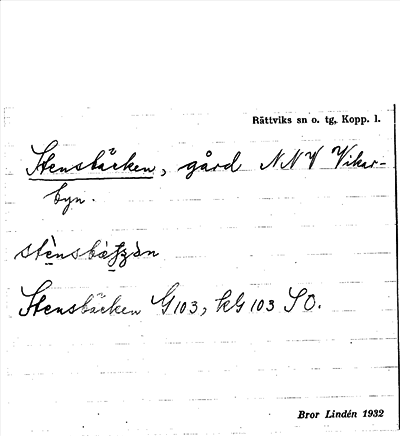 Rättviks sn o. tg, Kopp. l.
Stensbäcken, gård NNV Vikar-
byn.
Stensbäcken G103, kG103 SO.
Bror Lindén 1932